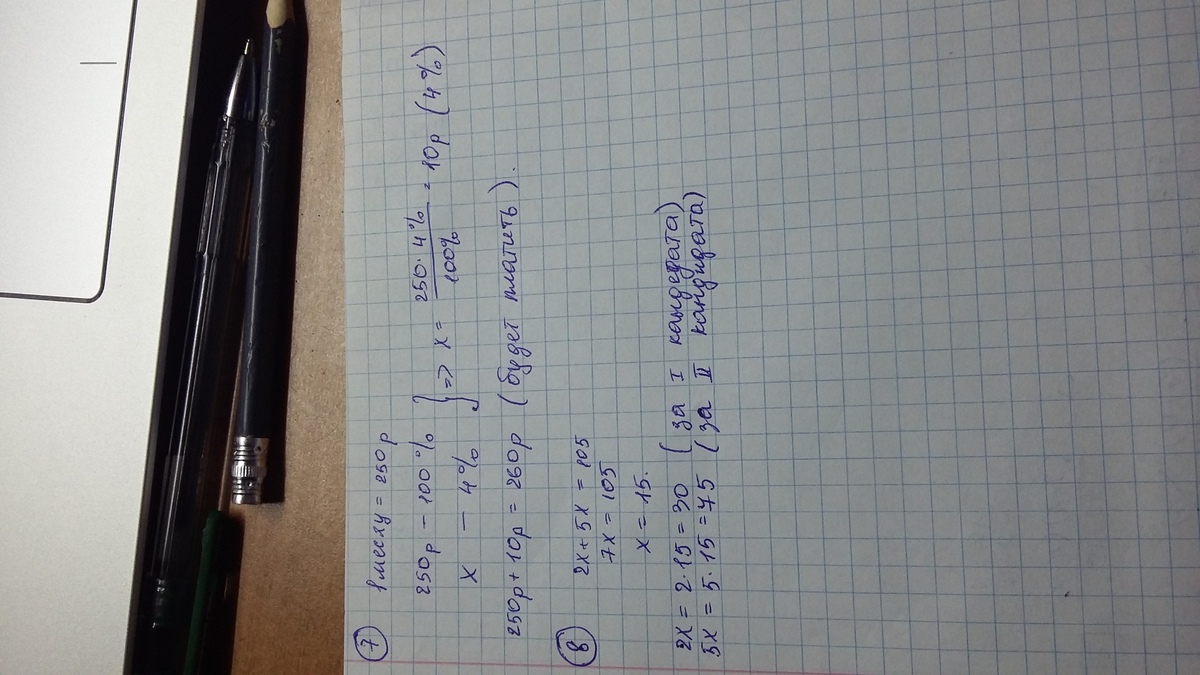 7
1 месяц = 250р
250р – 100% } => x = 250 · 4% / 100% = 10р (4%)
x – 4%
250р + 10р = 260р (будет платить).
8
2x + 5x = 105
7x = 105
x = 15.
2x = 2 · 15 = 30 (за I кандедата)
5x = 5 · 15 = 75 (за II кандидата)